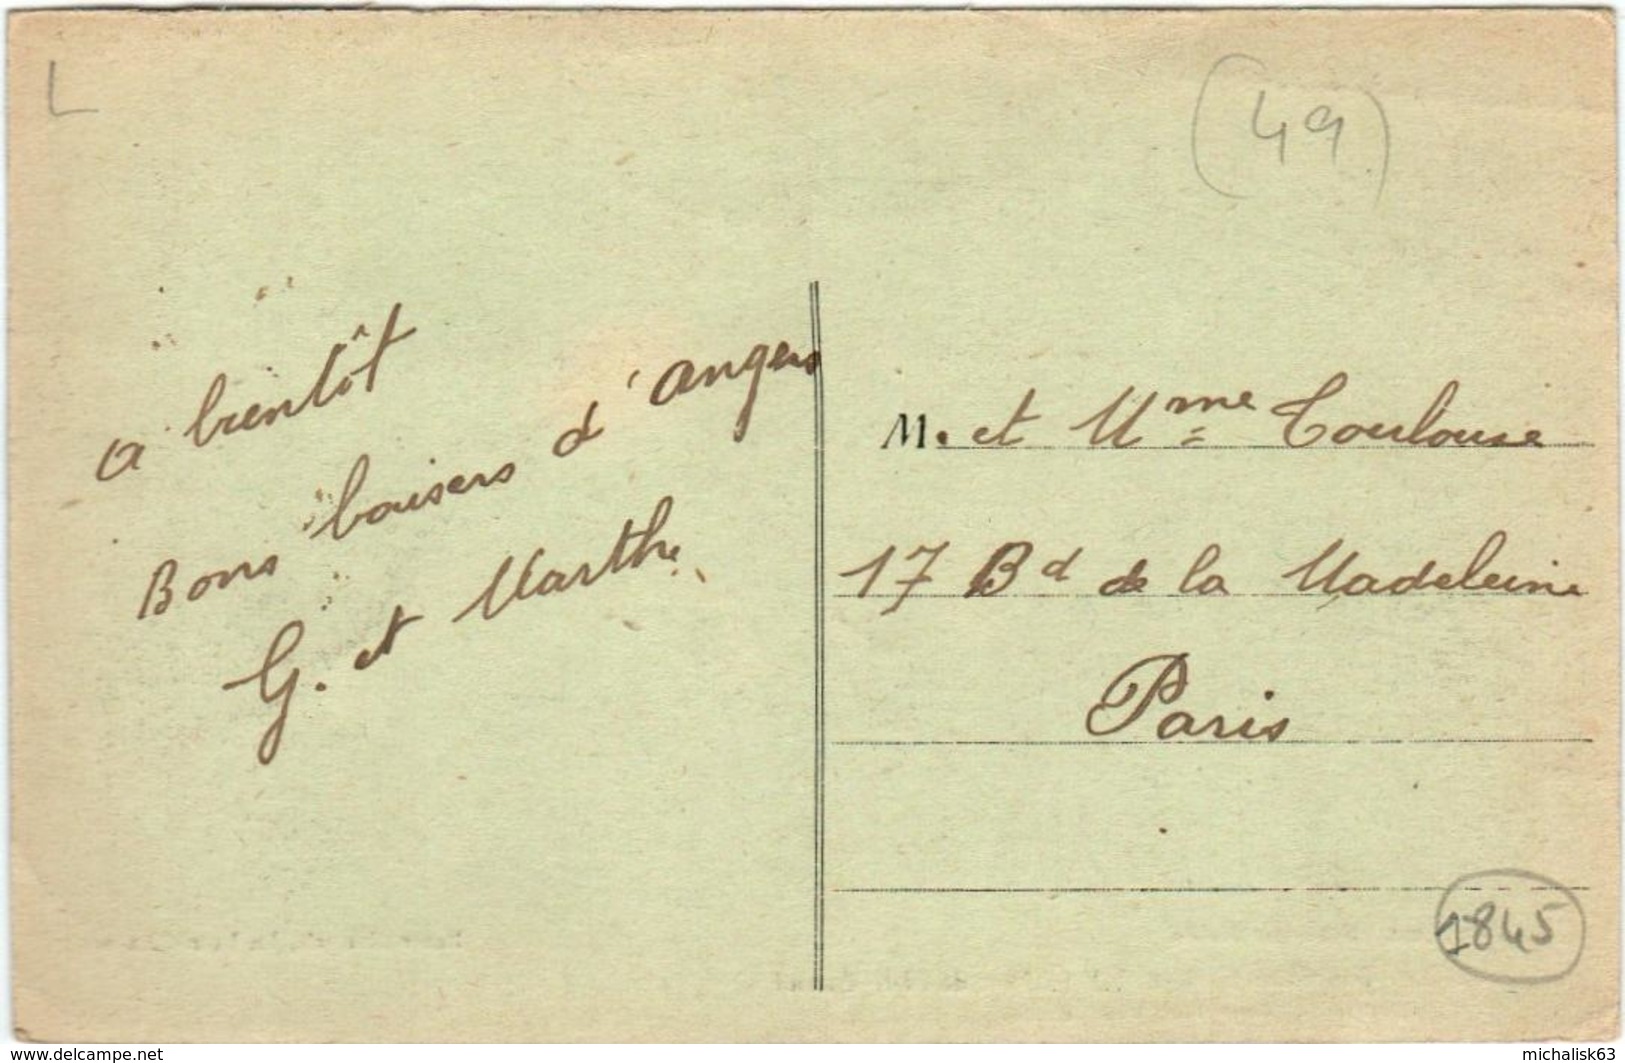 L
(49)
a bientôt
Bons baisers d'angers
G. et Marthe
M. et Mme Toulouse
17 Bd de la Madeleine
Paris
1845
www.delcampe.net
michalisk63